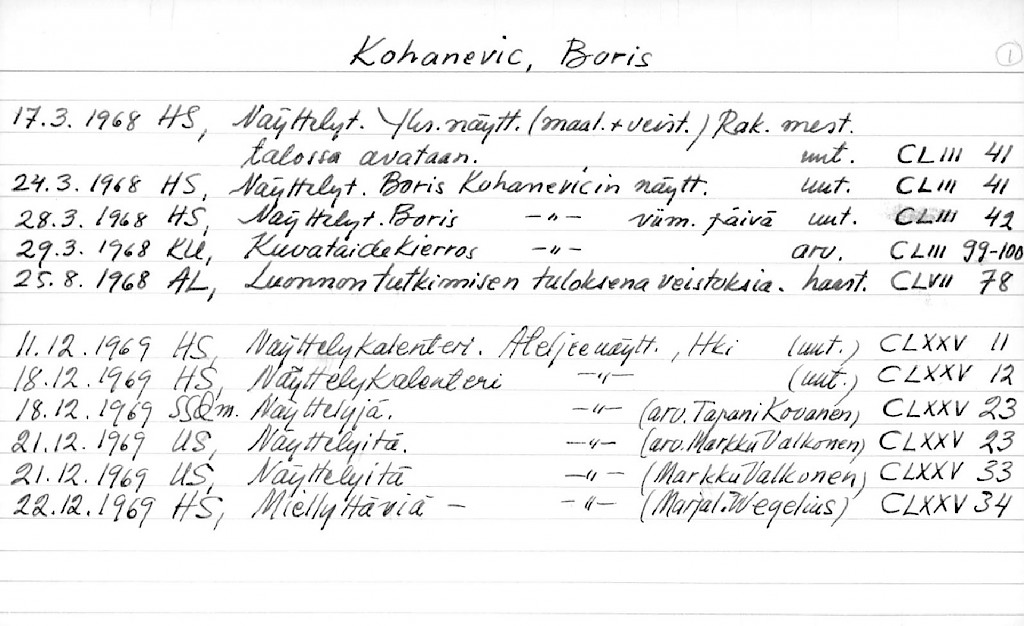 Kohanevic, Boris
1
17.3. 1968 HS, Näyttelyt. Yks.näytt. (maal.+veist.) Rak. mest.
talossa avataan. uut. CLIII 41
24.3. 1968 HS, Näyttelyt. Boris Kohanevicin näytt. uut. CLIII 41
28.3. 1968 HS, Näyttelyt. Boris -"- viim. päivä uut. CLIII 42
29.3. 1968 KU, Kuvataidekierros -"- arv. CLIII 99-100
25.8. 1968 AL, Luonnontutkimisen tuloksena veistoksia. haast. CLVII 78
11.12. 1969 HS, Näyttelykalenteri. Ateljeenäytt., Hki (uut.) CLXXV 11
18.12. 1969 HS, Näyttelykalenteri -"- (uut.) CLXXV 12
18.12. 1969 Näyttelyjä. -"- (arv. Tapani Kovanen) CLXXV 23
21.12. 1969 US, Näyttelyitä. -"- (arv. Markku Valkonen) CLXXV 23
21.12. 1969 US, Näyttelyitä -"- (Markku Valkonen) CLXXV 33
22.12. 1969 HS, Miellyttäviä - -"- (Marjal. Wegelius) CLXXV 34